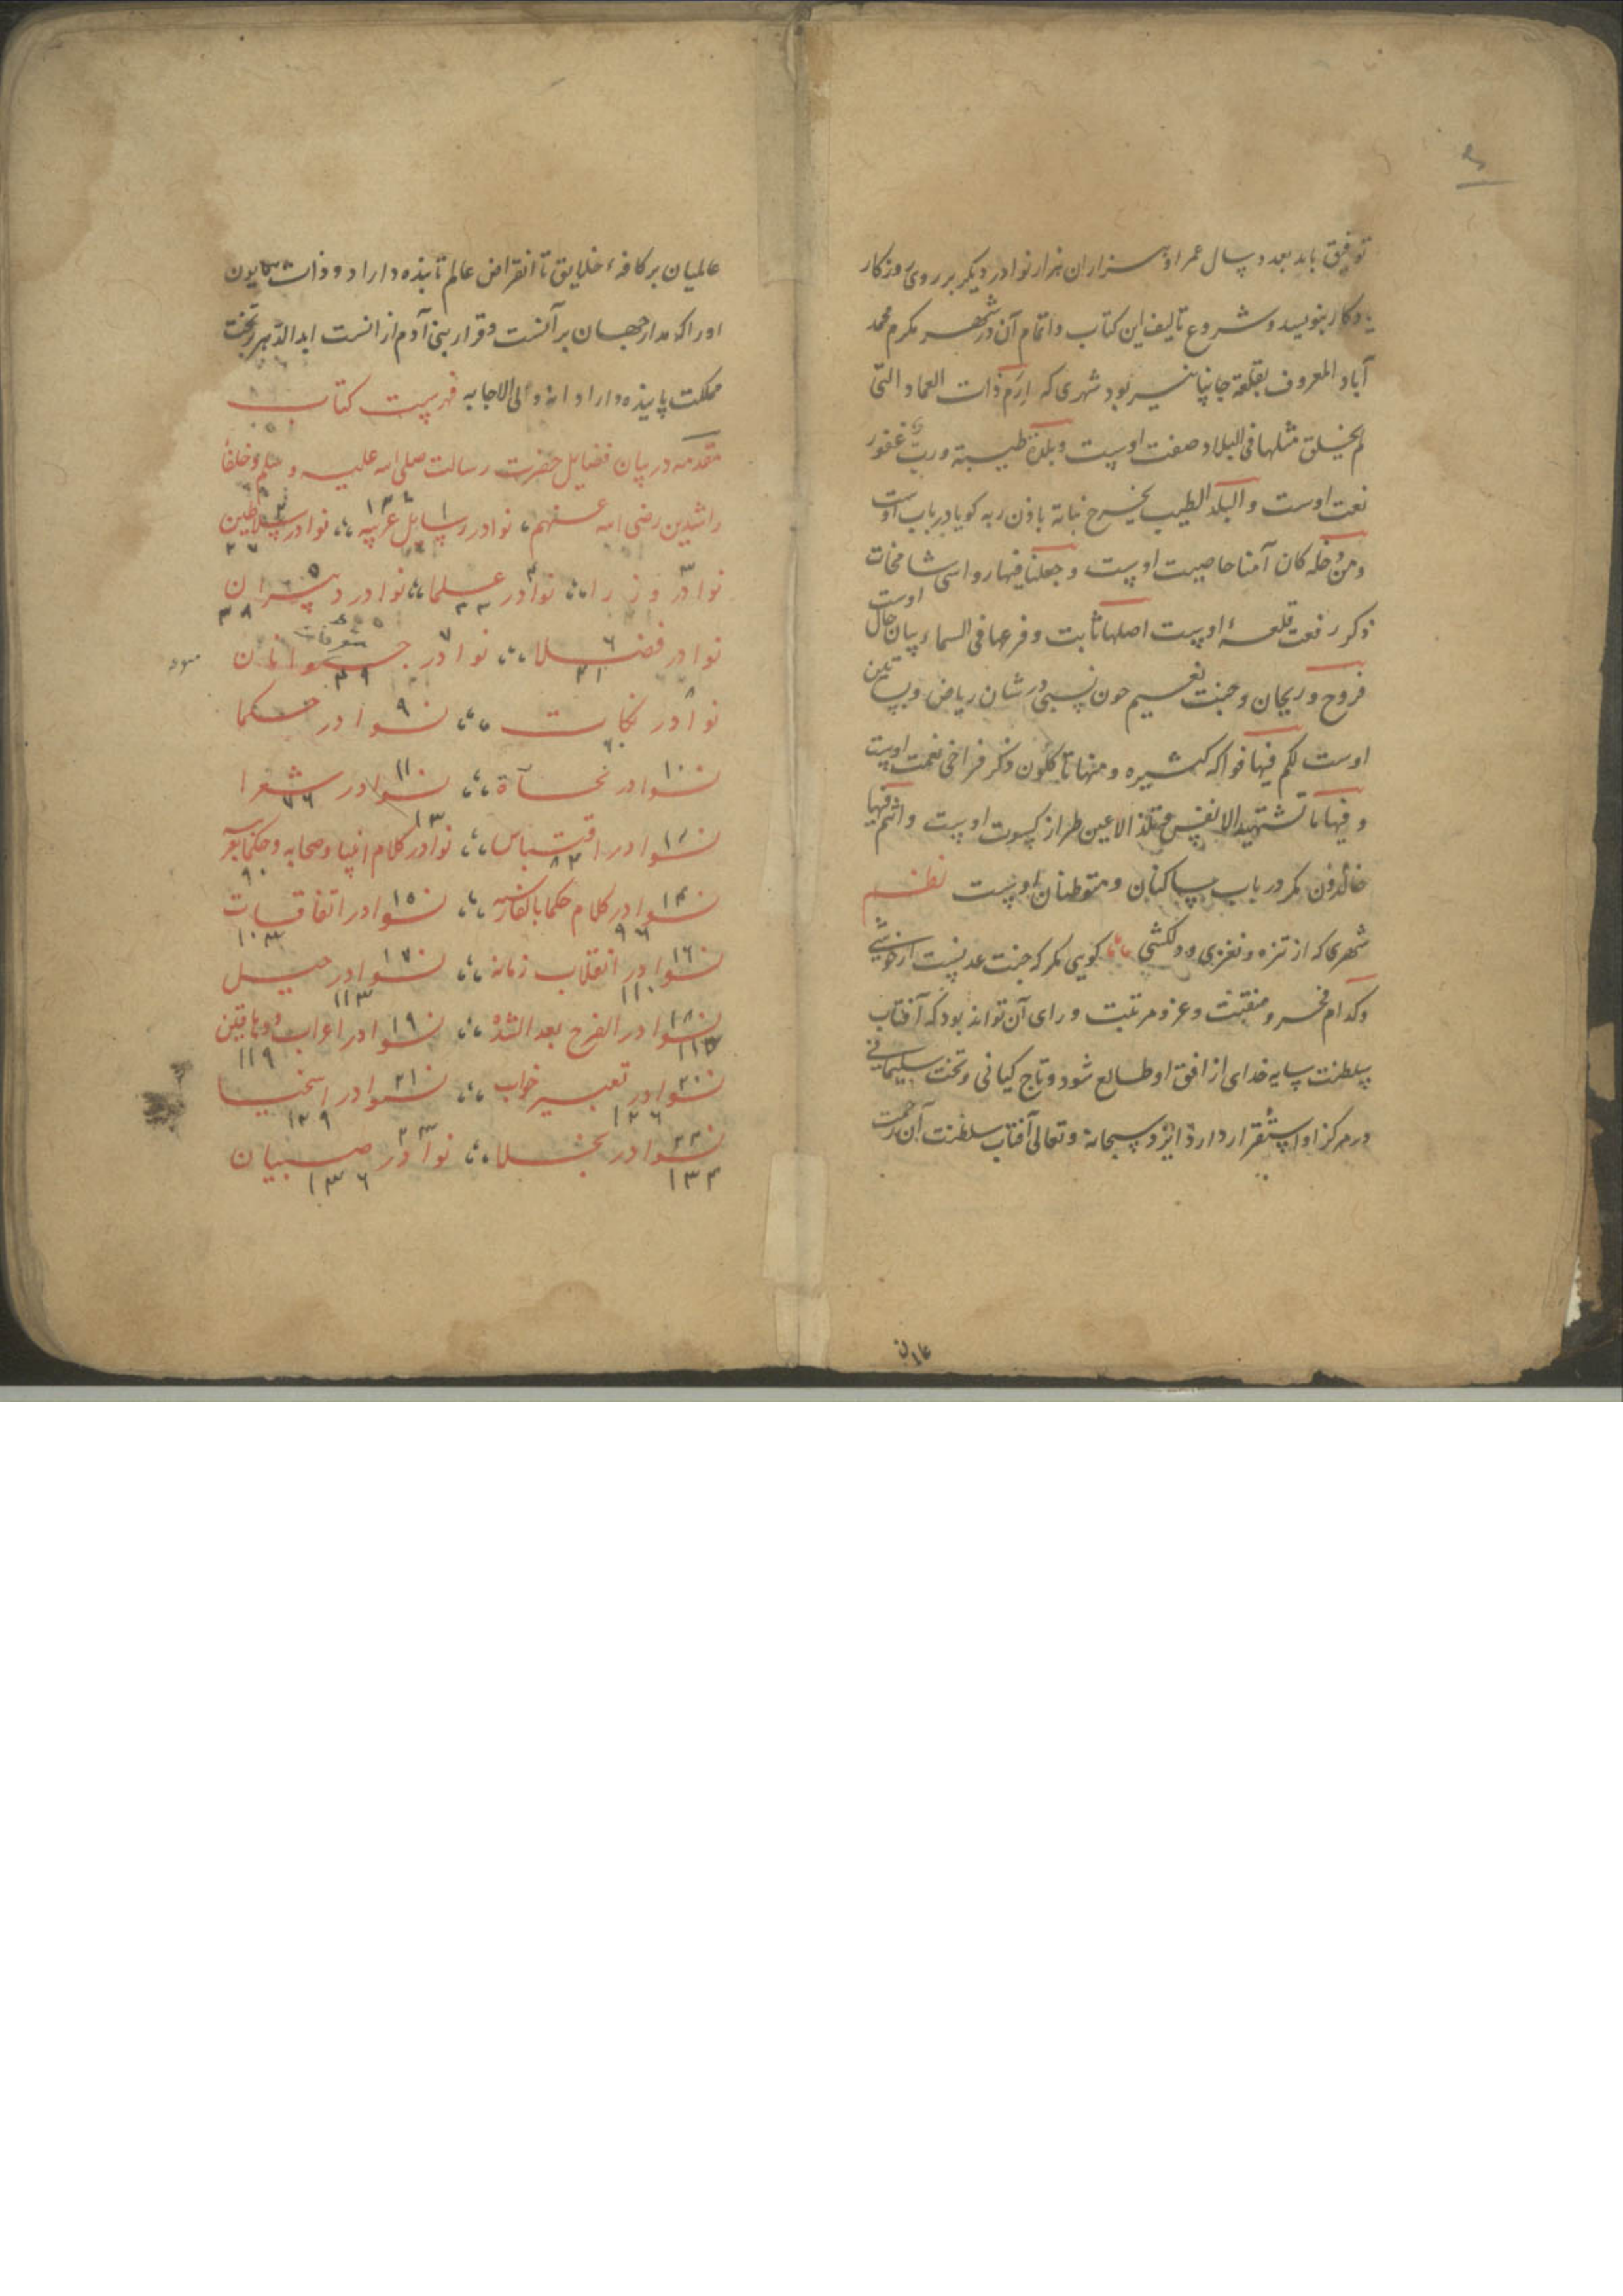 توفیق یابد بعدد سال عمر او هزاران هزار نوادر دیگر بر روی روزکار
یادکار بنویسد و شروع تالیف این کتاب و اتمام آن در شهر مکرم محمد
آباد المعروف بقلعة جانپانیر بود شهری که ارم ذات العماد التی
لم یخلق مثلها فی البلاد صفت اوست و بلدة طیبة و رب غفور
نعت اوست و البلد الطیب یخرج نباته باذن ربه کویا در باب اوست
و من دخله کان آمنا خاصیت اوست و جعلنا فیها رواسی شامخات
ذکر رفعت قلعهٔ اوست اصلها ثابت و فرعها فی السماء بیان حال اوست
فروح و ریحان و جنت نعیم چون نسبی در شان ریاض و بساتین
اوست لکم فیها فواکه کثیره و منها تاکلون ذکر فراخی نعمت اوست
و فیها ما تشتهیه الانفس و تلذ الاعین طراز کسوت اوست و انتم فیها
خالدون مکر در باب ساکنان و متوطنان اوست نظم
شهری که از تنزه و نغزی و دلکشی کویی مکر که جنت عدنست از خوشی
و کدام فخر و منقبت و عز و مرتبت ورای آن تواند بود که آفتاب
سلطنت سایه خدای از افق او طالع شود و تاج کیانی و تخت سلیمانی
در مرکز او استقرار دارد ایزد سبحانه و تعالی آفتاب سلطنت آن رحمت
عالمیان بر کافهٔ خلایق تا انقراض عالم تابنده داراد و ذات همایون
او را که مدار جهان بر آنست و قرار بنی آدم از انست ابد الدهر بر تخت
مملکت پاینده داراد انه ولی الاجابه فهرست کتاب
مقدمه در بیان فضایل حضرت رسالت صلی الله علیه و سلم و خلفاء
راشدین رضی الله عنهم نوادر رسایل عربیه ۱ نوادر سلاطین ۲
نوادر وزرا ۳ نوادر علما ۴ نوادر دبیران ۵
۳۸
نوادر فضلا ۶ نوادر جوانان ۷
۴۱ ۴۹
نوادر نکات ۸ نوادر حکما ۹
نوادر نحاة ۱۰ نوادر شعرا ۱۱
۷۶
نوادر اقتباس ۱۲ نوادر کلام انبیا و صحابه و حکما بعربیه ۱۳
۸۳ ۹۰
نوادر کلام حکما بالفارسیه ۱۴ نوادر اتفاقات ۱۵
۹۶ ۱۰۳
نوادر انقلاب زمانه ۱۶ نوادر حیل ۱۷
۱۱۰ ۱۱۳
نوادر الفرج بعد الشده ۱۸ نوادر اعراب و دهاقین ۱۹
۱۱۹
نوادر تعبیر خواب ۲۰ نوادر اسخیا ۲۱
۱۲۶ ۱۲۹
نوادر بخلا ۲۲ نوادر صبیان ۲۳
۱۳۴ ۱۳۶